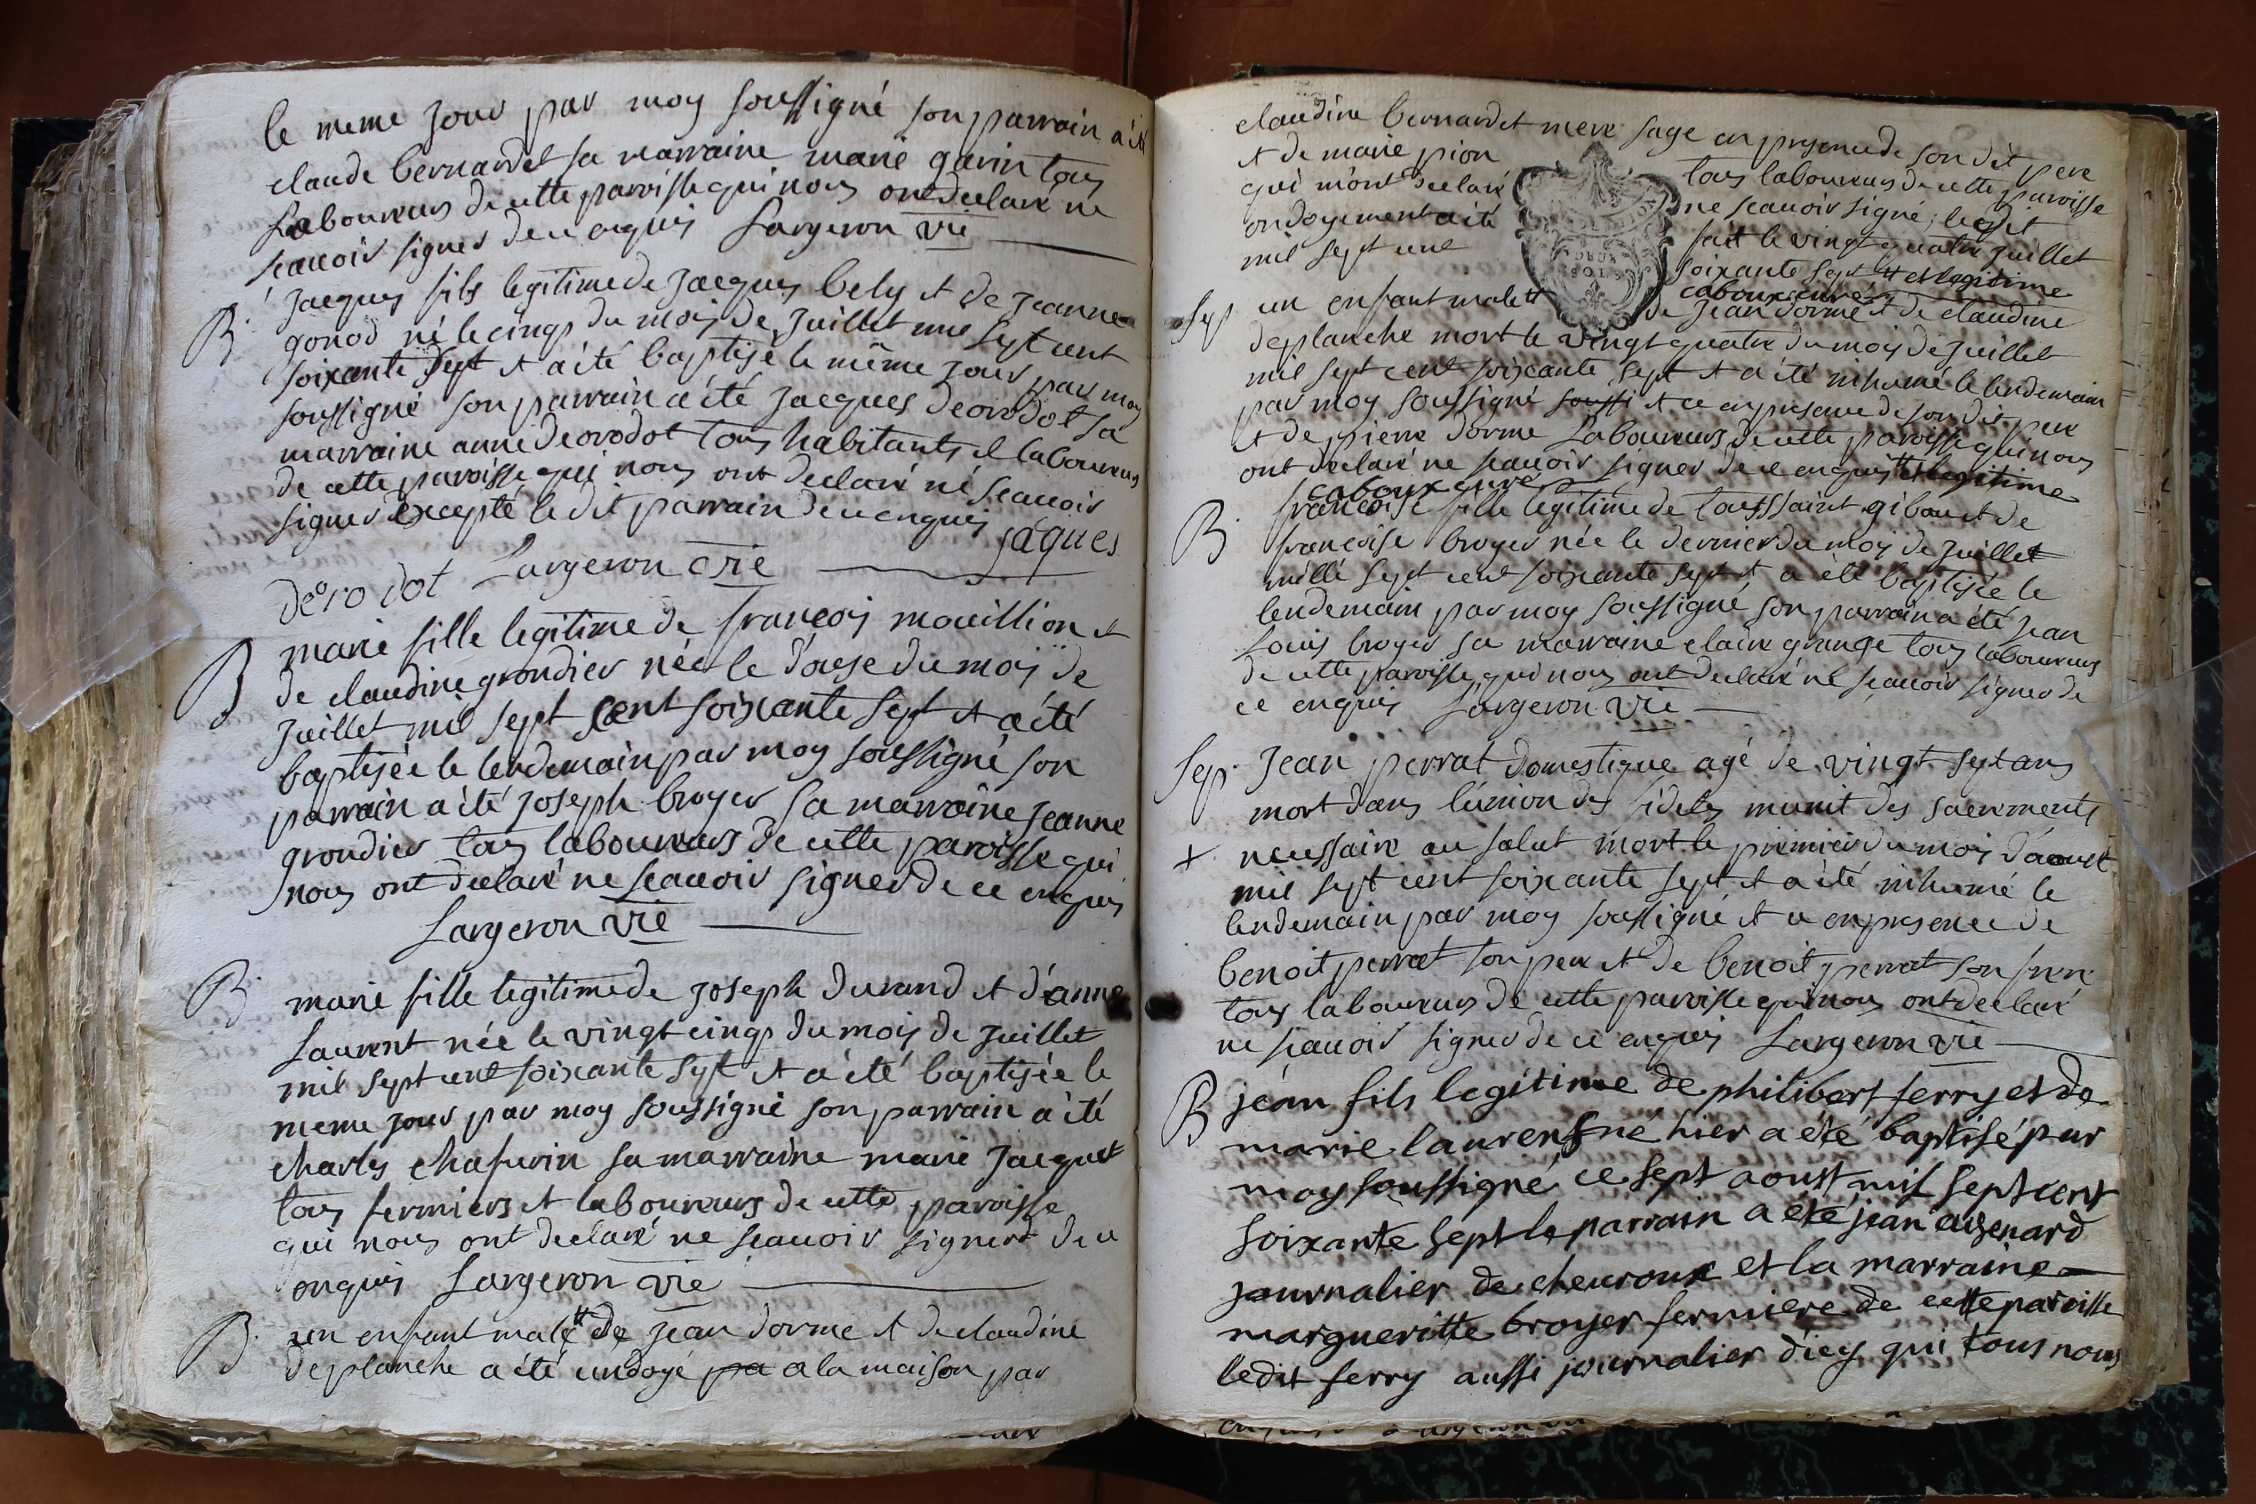 le meme jour par moy soussigné son parrain a été
claude bernardet sa marraine marie gavin tous
Laboureurs de cette paroisse qui nous ont declaré ne
scavoir signer de ce enquis Largeron vie
B. jacques fils legitime de jacques bely et de jeanne
gonod né le cinq du mois de juillet mil sept cent
soixante sept et a été baptisé le même jour par moy
soussigné son parrain a été jacques deorodot sa
marraine anne deorodot tous habitants et laboureurs
de cette paroisse qui nous ont declaré né scavoir
signer excepté le dit parrain de ce enquis jaques
deorodot Largeron vie
B marie fille legitime de françois mouillion et
de claudine grondier née le douse du moy de
juillet mil sept cent soixante sept et a été
baptisée le lendemain par moy soussigné son
parrain a été joseph broyer sa marraine jeanne
grondier tous laboureurs de cette paroisse qui
nous ont declaré ne scavoir signer de ce enquis
Largeron vie
B. marie fille legitime de joseph durand et d'anne
Laurent née le vingt cinq du mois de juillet
mil sept cent soixante sept et a été baptisée le
meme jour par moy soussigné son parrain a été
charles chafurin sa marraine marie jacquet
tous fermiers et laboureurs de cette paroisse
qui nous ont declaré ne scavoir signer de ce
enquis Largeron vie
B. un enfant male # de jean dorme et de claudine
deplanche a été undoyé pa a la maison par
claudine bernardet mere sage en presence de son dit pere
et de marie pion tous laboureurs de cette paroisse
qui m'ont declaré ne scavoir signé, le dit
ondoyement a été fait le vingt quatre juillet
mil sept cent soixante sept # et legitime
caboux curé
Sep un enfant male # de jean dorme et de claudine
deplanche mort le vingt quatre du mois de juillet
mil sept cent soixante sept et a été inhumé le lendemain
par moy soussigné soussi et ce en presence de son dit pere
et de pierre dorme Laboureurs de cette paroisse qui nous
ont declaré ne scavoir signer de ce enquis # et legitime
caboux curé
B. françoise fille legitime de toussaint gibou et de
françoise broyer née le dernier du moy de juillet
mille sept cent soixante sept et a été baptisée le
lendemain par moy soussigné son parrain a été jean
Louis broyer sa marraine claire grange tous laboureurs
de cette paroisse qui nous ont declaré ne scavoir signer de
ce enquis Largeron vie
Sep. Jean perrat domestique agé de vingt sept ans
mort dans l'union des fideles munit des sacrements
+ necessaire au salut mort le premier du mois d'aoust
mil sept cent soixante sept et a été inhumé le
lendemain par moy soussigné et ce en presence de
benoit perrat son pere et de benoit perrat son frere
tous laboureurs de cette paroisse qui nous ont declaré
ne scavoir signer de ce enquis Largeron vie
B jean fils legitime de philibert ferry et de
marie laurent né hier a été baptisé par
moy soussigné ce sept aoust mil sept cent
soixante sept le parrain a été jean
journalier de chevroux et la marraine
margueritte broyer fermiere de cette paroisse
ledit ferry aussi journalier d'icy qui tous nous